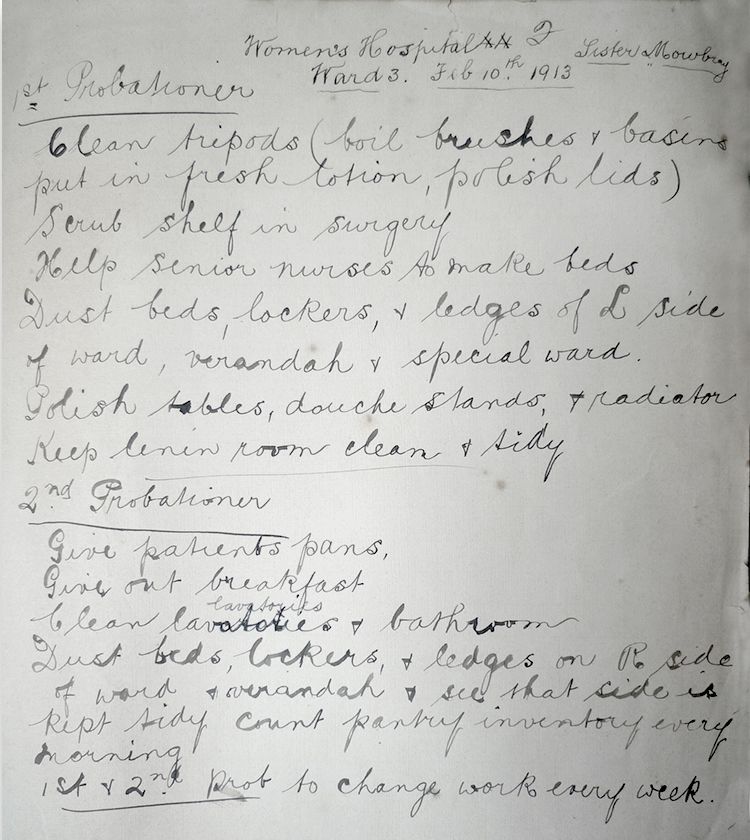 Women's Hospital
Sister Mowbray
Ward 3. Feb 10th 1913
1st Probationer
Clean tripods (boil brushes & basins
put in fresh lotion, polish lids)
Scrub shelf in surgery
Help senior nurses to make beds
Dust beds, lockers, & ledges of L side
of ward, verandah & special ward.
Polish tables, douche stands, & radiator
Keep linin room clean & tidy
2nd Probationer
Give patients pans,
Give out breakfast
lavatories
Clean lavatories & bathroom
Dust beds, lockers, & ledges on R side
of ward & verandah & see that side is
kept tidy count pantry inventory every
morning
1st & 2nd Prob to change work every week.